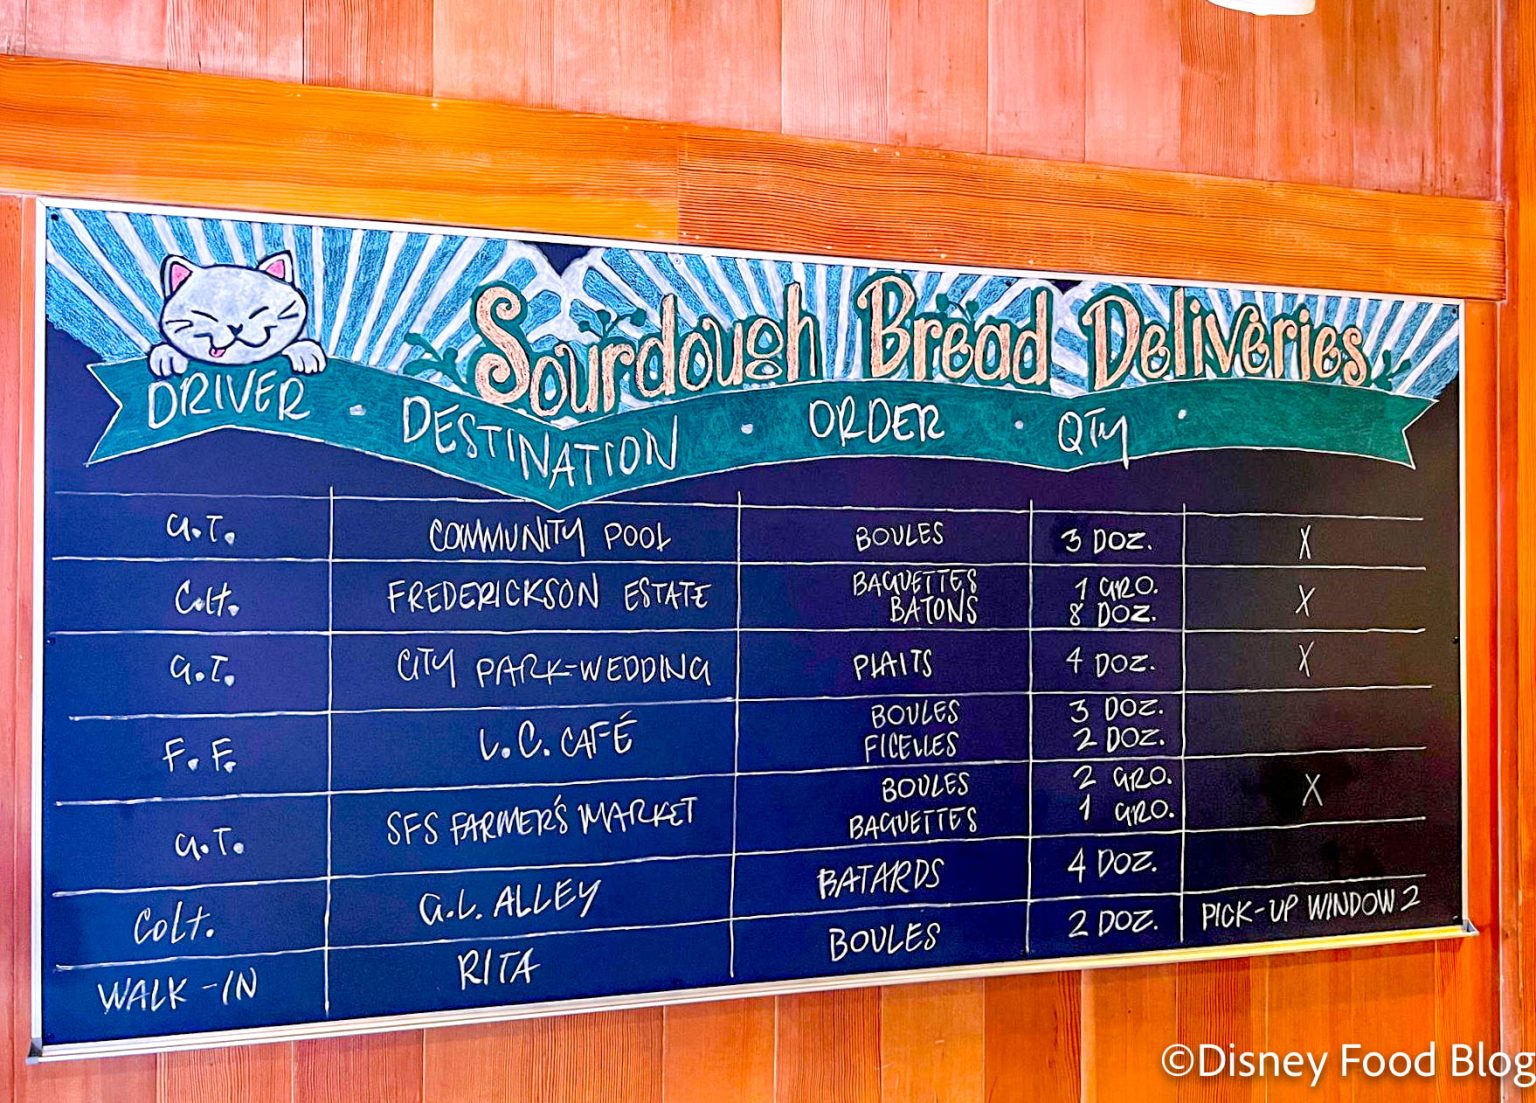 Sourdough Bread Deliveries
DRIVER · DESTINATION · ORDER · QTY ·
G.T. COMMUNITY POOL BOULES 3 DOZ. X
Colt. FREDERICKSON ESTATE BAGUETTES 1 GRO. X
BATONS 8 DOZ.
G.T. CITY PARK-WEDDING PLAITS 4 DOZ. X
F.F. L.C. CAFÉ BOULES 3 DOZ.
FICELLES 2 DOZ.
G.T. SFS FARMER'S MARKET BOULES 2 GRO. X
BAGUETTES 1 GRO.
Colt. G.L. ALLEY BATARDS 4 DOZ.
WALK-IN RITA BOULES 2 DOZ. PICK-UP WINDOW 2
©Disney Food Blog